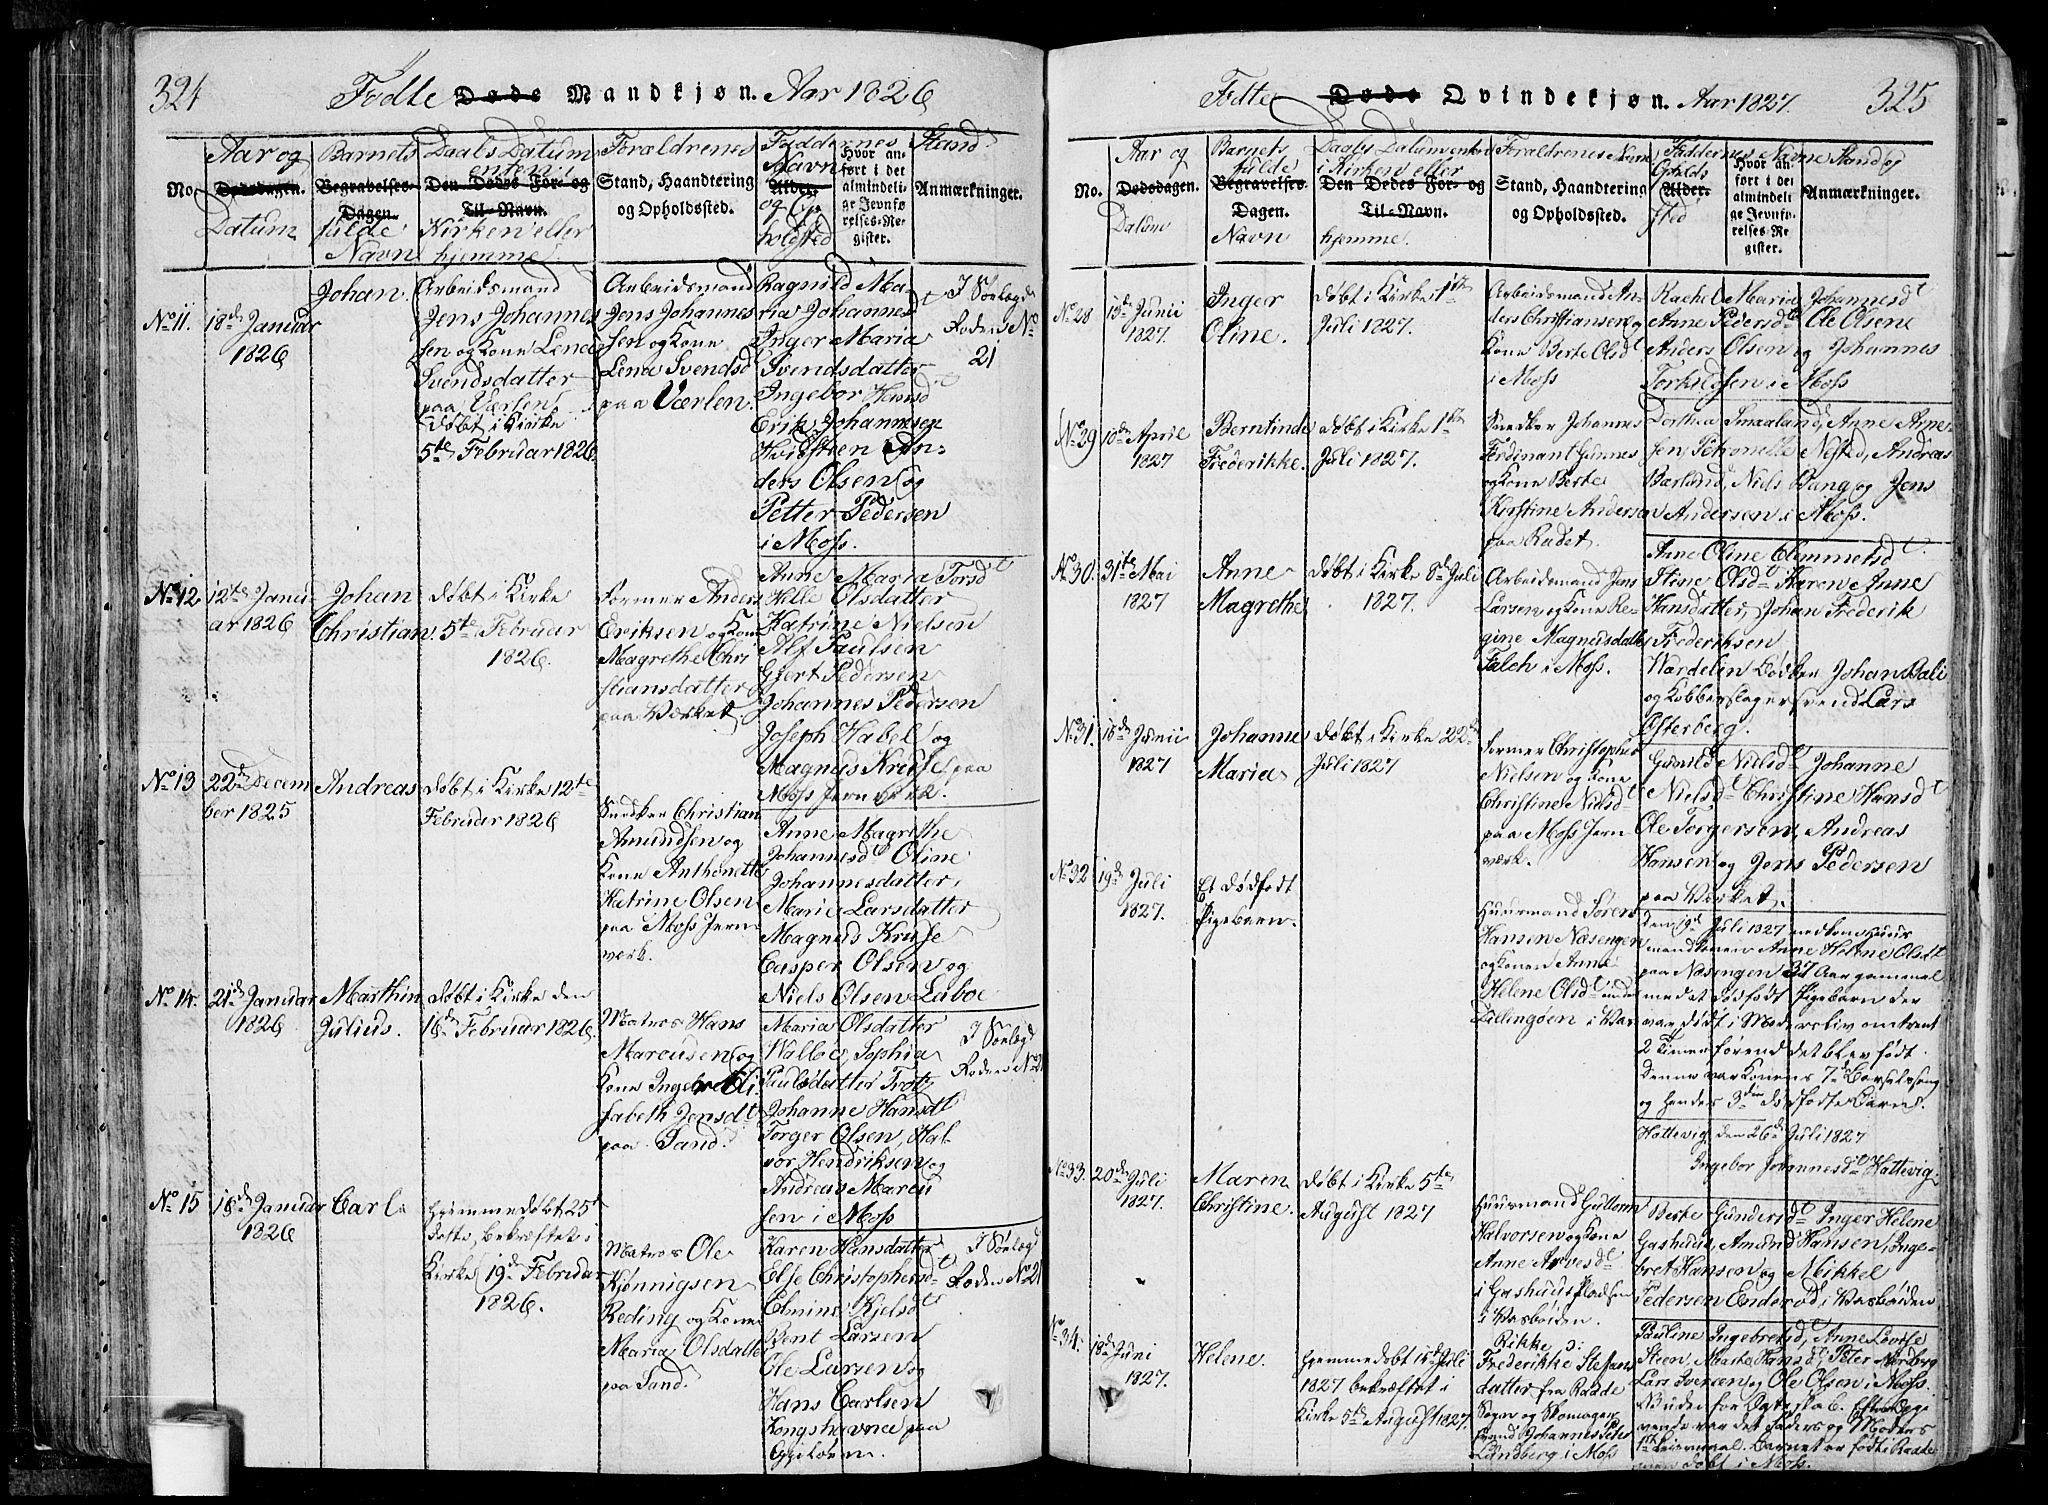 324
Fødte Døde Mandkjøn. Aar 1826
No.
Aar og
Dødsdagen.
Datum
Barnets
Begravelses-
Dagen.
fulde
Navn
Daabs Datum
enten i
Den Dødes For- og
Til-Navn.
Kirken eller
hjemme
Forældrenes
Stand, Haandtering
og Opholdssted.
Faddernes
Navn
Alder.
og Op-
holdsted
Hvor an-
ført i det
almindeli-
ge Jevnfø-
relses-Re-
gister.
Stand
Anmærkninger.
No 11.
18de Januar
1826
Johan
Arbeidsmand
Jens Johannes
sen og Kone Lene
Svendsdatter
paa Værlen
døbt i Kirke
5te Februar 1826
Arbeidsmand
Jens Johannes
sen og Kone
Lena Svendsd
paa Værlen.
Ragnild Ma-
ria Johannesdt
Inger Maria
Svendsdatter
Ingebor Hansdt
Erik Johannesen
Hvidsteen An-
ders Olsen og
Petter Pedersen
i Moss.
I Søelægd
Roden No
21
No 12
12te Janu-
ar 1826
Johan
Christian
døbt i Kirke
5te Februar
1826.
Former Anders
Eriksen og Kone
Magrethe Chri
stiansdatter
paa Værket
Anne Maria Torsdt
Helle Olsdatter
Katrine Nielsen
Alf Paulsen
Gjert Pedersen
Johannes Pedersen
Joseph Habel og
Magnus Kruse paa
Moss Jernværk.
No 13
22de Decem
ber 1825
Andreas
døbt i Kirke 12te
Februar 1826
Snedker Christian
Amundsen og
Kone Anthonette
Katrine Olsen
paa Moss Jern-
værk.
Anne Magrethe
Johannesdt Oline
Johannesdatter,
Marie Larsdatter
Magnus Kruse
Casper Olsen og
Niels Olsen Laboe
No 14.
21de Januar
1826
Marthin
Julius.
døbt i Kirke den
16de Februar 1826
Matros Hans
Marcusen og
Kone Ingebor Eli
sabeth Jensdt
paa Sand.
Maria Olsdatter
Walloe, Sophia
Paulsdatter Trotz
Johanne Hansdt
Torger Olsen, Hal-
vor Hendriksen og
Andreas Marcu
sen i Moss
I Søelægd
Roden No 21
No 15
16de Januar
1826
Carl
Hjemmedøbt 25de
dette, bekræftet i
Kirke 19de Februar
1826.
Matros Ole
Kjønnigsen
Reding og Kone
Maria Olsdatter
paa Sand.
Karen Hansdatter
Else Christophersdt
Elmine Kjelsdt
Bent Larsen
Ole Larsen og
Hans Carlsen
Kongshavnee paa
I Søelægd
Roden No 21
325
Fødte Døde Qvindekjøn. Aar 1827.
No.
Aar og
Dødsdagen.
Datum
Barnets
fulde
Begravelses-
Dagen.
Navn
Daabs Datum enten
i Kirken eller
Den Dødes For- og
Til-Navn.
hjemme.
Forældrenes Navn
Stand, Haandtering
og Opholdssted.
Faddernes Navne Stand og
Opholds
Alder.
sted
Hvor an-
ført i det
almindeli-
ge Jevnfø-
relses-Re-
gister.
Anmærkninger.
No 28
13de Junii
1827.
Inger
Oline.
døbt i Kirke 1ste
Juli 1827.
Arbeidsmand An-
ders Christiansen og
Kone Berte Olsdt
i Moss
Rachel Maria Johannesdt
Anne Pedersdt Ole Olsen
Anders Olsen og Johannes
Torkildsen i Moss
No 29
10de April
1827
Berntinde
Frederikke.
døbt i Kirke 1ste
Juli 1827.
Snedker Johannes
Ferdinant Gunnes
og Kone Berte
Kirstine Andersen
paa Radet.
Dorthea Smaaland, Anne Arne-
sen, Petronelle Negsted, Andreas
Barland, Niels Bang og Jens
Andersen i Moss.
No 30.
31te Mai
1827
Anne
Magrethe
døbt i Kirke 8de Juli
1827.
Arbeidsmand Jens
Larsen og Kone Re-
gine Magnusdatter
Falch i Moss.
Anne Oline Clemmetsdt.
Stine Olsdt Karen Anne
Hansdatter, Johan Frederik
Frederiksen
Wardelin Bødker Johan Bali
og Kobberslager svend Lars
Østerberg.
No 31.
16de Junii
1827
Johanne
Maria
døbt i Kirke 22de
Juli 1827
Former Christopher
Nielsen og Kone
Christine Nielsdt
paa Moss Jern
værk.
Gunild Nielsdt Johanne
Nielsdt Christine Hansdt
Ole Torgersen, Andreas
Hansen og Jens Pedersen
paa Værket.
No 32
19de Juli
1827.
Et dødfødt
Pigebarn.
Huusmand Søren
Hansen Næsengen
og Konen Anne
Helene Olsdt under
Dillingøen i Van
Den 19de Juli 1827 nedkom Huus
mandkonen Anne Helene Olsdt
paa Næsengen 37 Aar gammel
med et dødfødt Pigebarn der
var dødt i Moders liv omtrent
2 Timer førend det blev født.
Denne var Konens 7de Barselseng
og hendes 3die dødfødte Barn.
Hattevig den 26de Juli 1827
Ingebor Johannesdt Hattevig
No 33.
20de Juli
1827.
Maren
Christine.
døbt i Kirke 5te
August 1827
Huusmand Guttorm
Halvorsen og Kone
Anne Arvesdt
i Gashuus Pladsen
i Vasbøiden.
Berte Gundersdt Inger Helene
Gashuus, Amund Hansen, Inge-
bret Hansen og Mikkel
Pedersen Enderød i Vasbøiden
No 34.
18de Juni
1827.
Helene.
Hjemmedøbt 15de Juli
1827 bekræftet i
Kirke 5te August 1827.
Rikke o:
Frederikke Stefans
datter fra Raade
Sogn og Skomager
svend Johannes Peter
Lundberg i Moss
Pauline Ingebretsdt, Anne Lovise
Steen, Marthe Hansdt, Peter Nordberg
Lars Svensen og Ole Olsen i Moss.
vende var det Faders og Moders
1ste Leiermaal. Barnet er født i Raade
men døbt i Moss.